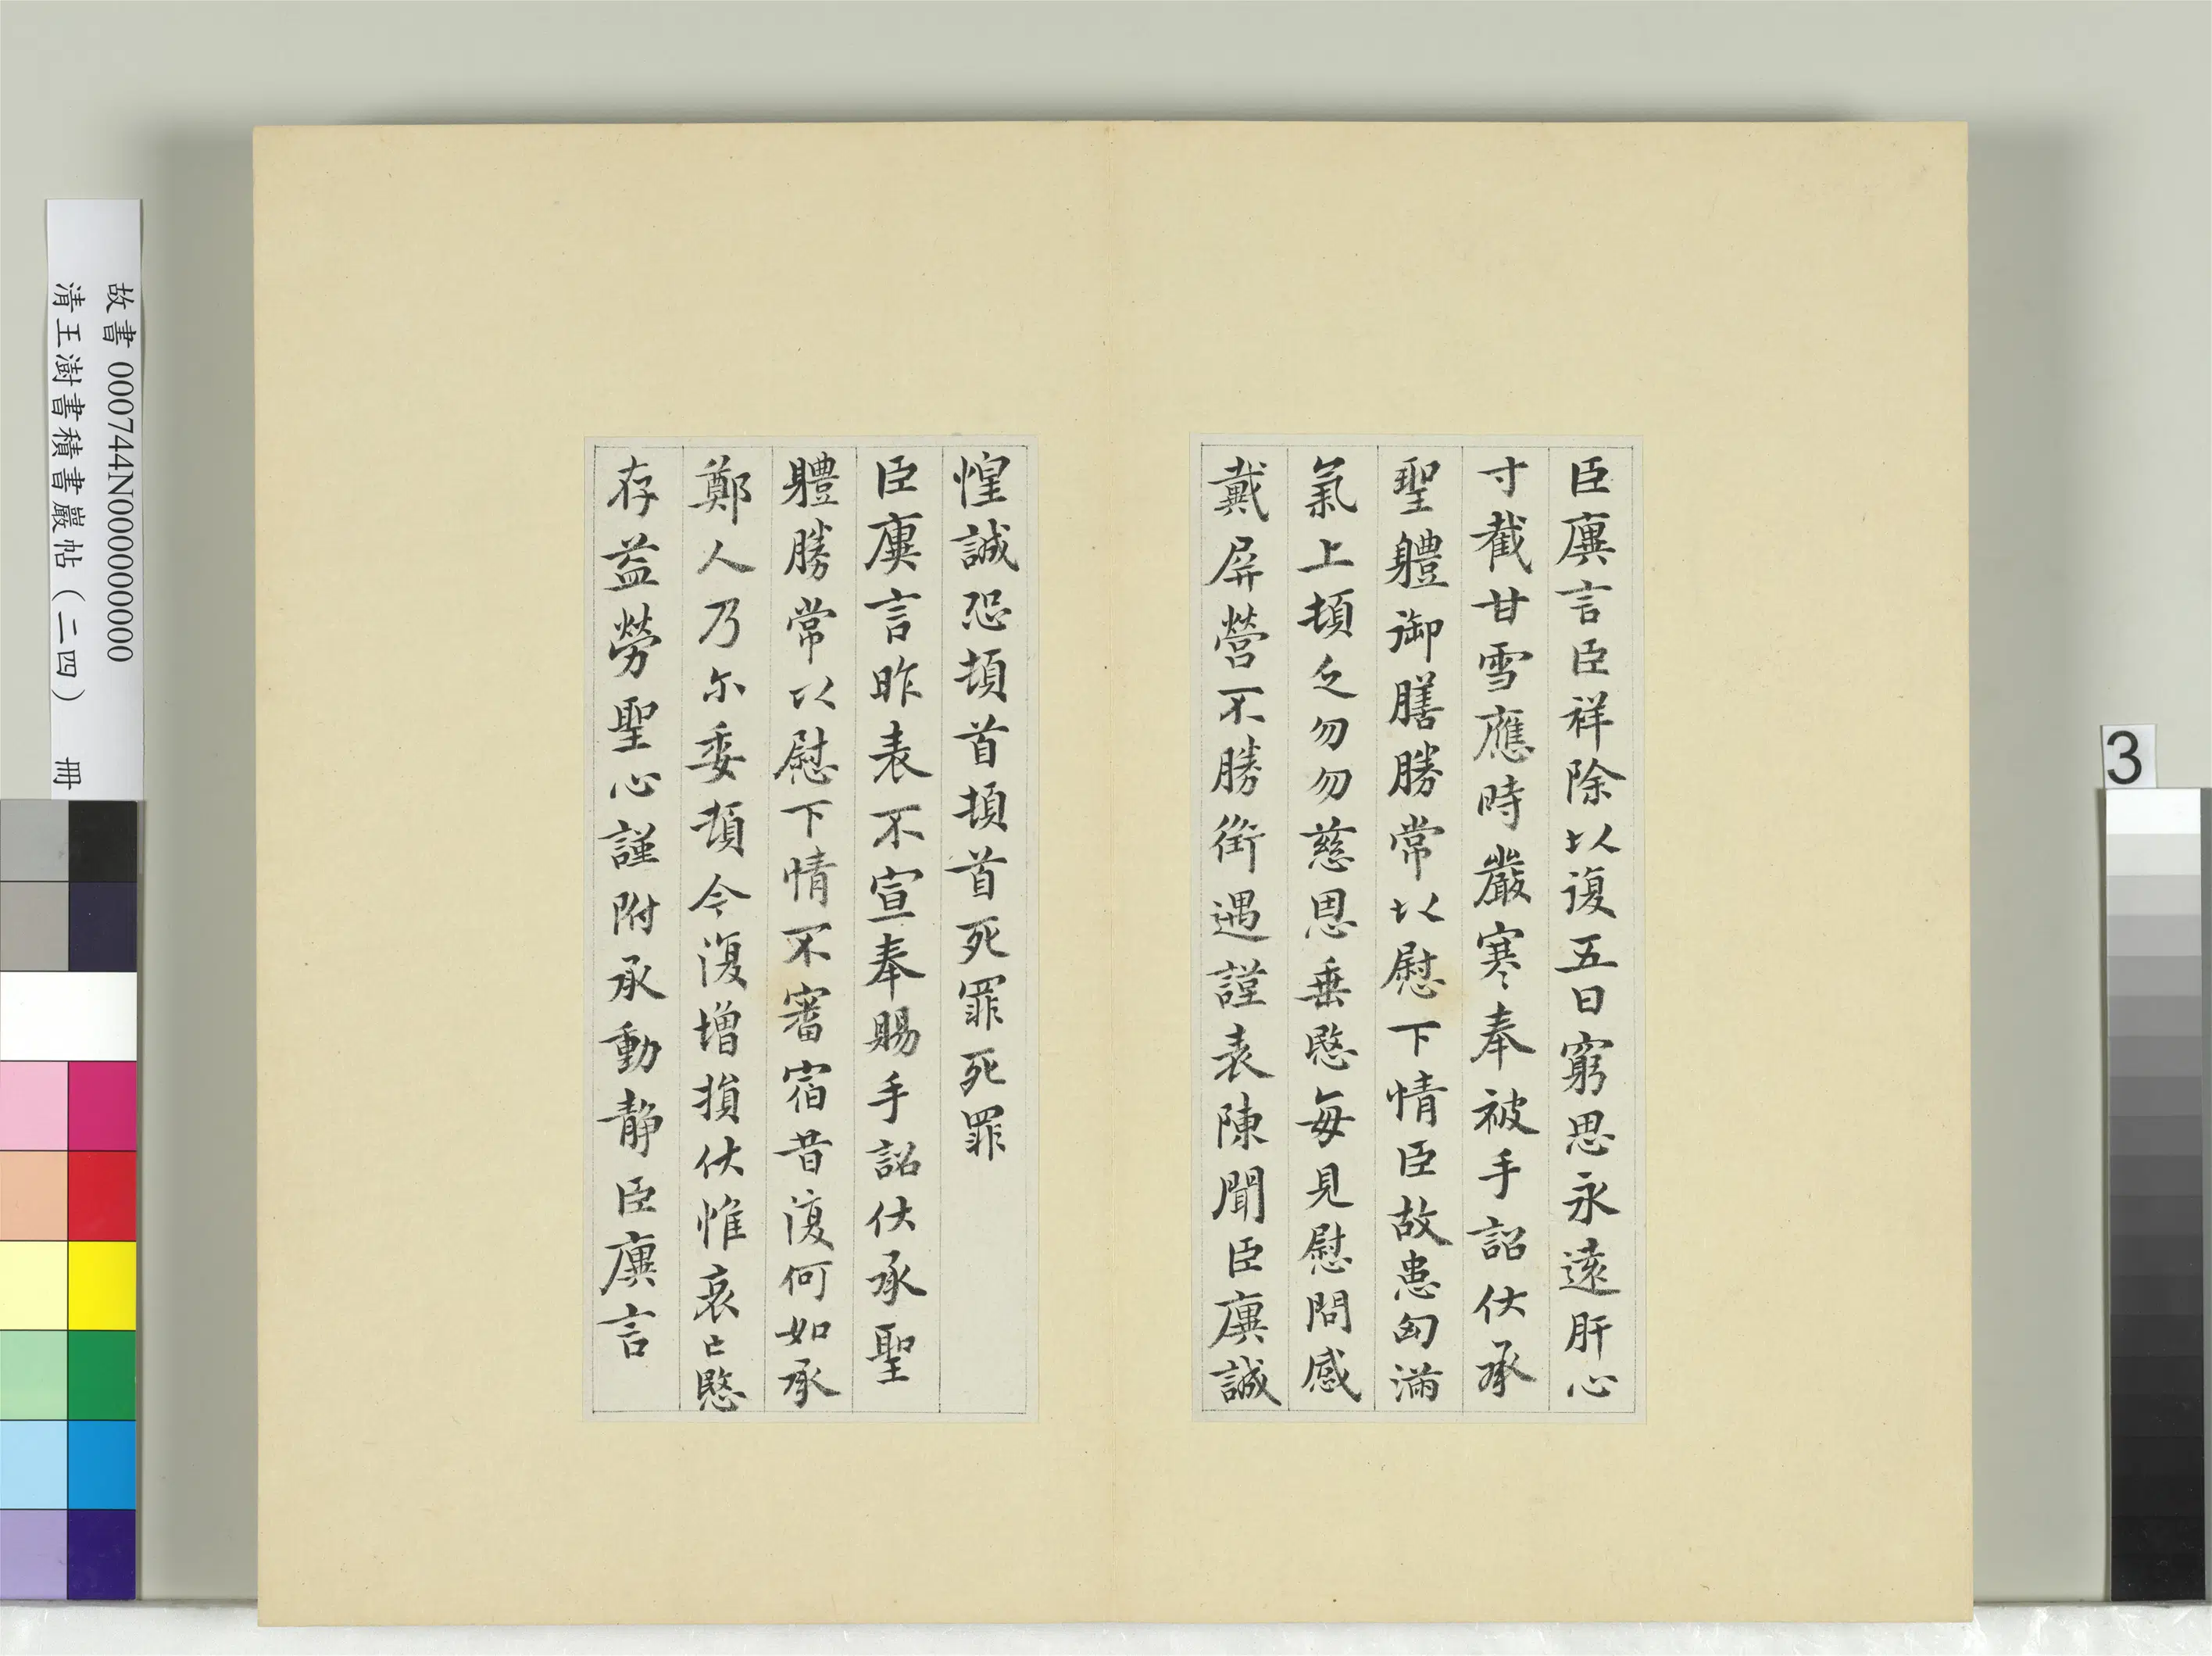 臣廙言臣祥除以復五日窮思永遠肝心
寸截甘雪應時嚴寒奉被手詔伏承
聖體御膳勝常以慰下情臣故患匈滿
氣上頓乏勿勿慈恩垂愍每見慰問感
戴屏營不勝銜遇謹表陳聞臣廙誠
惶誠恐頓首頓首死罪死罪
臣廙言昨表不宣奉賜手詔伏承聖
體勝常以慰下情不審宿昔復何如承
鄭人乃尒委頓今復增損伏惟哀亡愍
存益勞聖心謹附承動靜臣廙言
故書 000744N000000000
清王澍書積書巖帖（二四） 冊
3